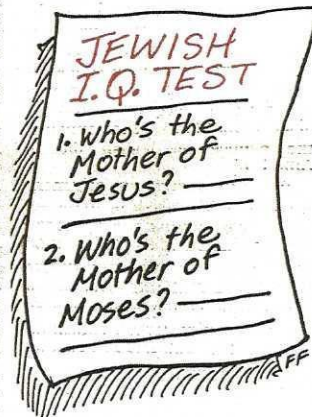 JEWISH
I.Q. TEST
1. Who's the
Mother of
Jesus?
2. Who's the
Mother of
Moses?
FF